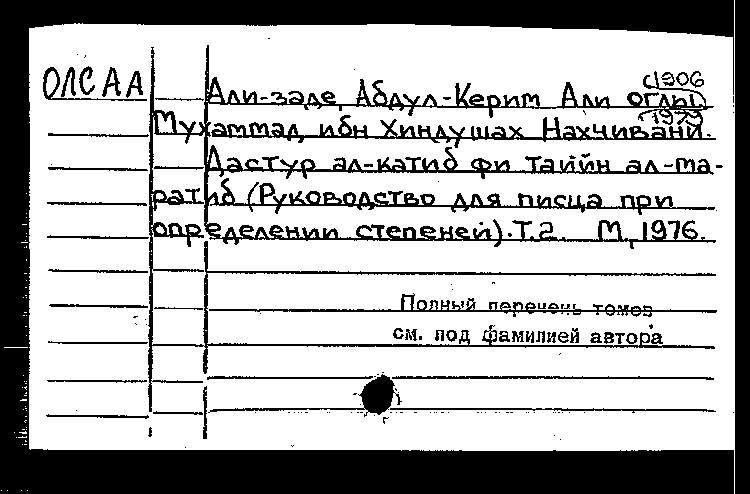 ОЛС АА
(1906
Али-заде, Абдул-Керим Али оглы.
1979)
Мухаммад ибн Хиндушах Нахчивани.
Дастур ал-катиб фи таййн ал-ма-
ратиб (Руководство для писца при
определении степеней). Т.2. М., 1976.
Полный перечень томов
см. под фамилией автора